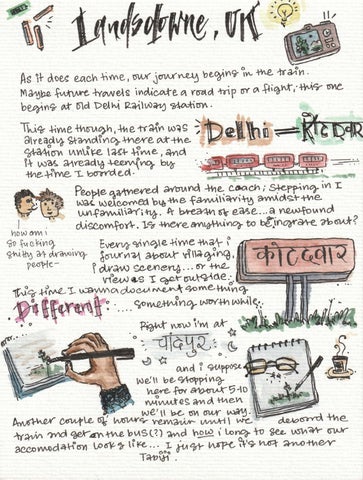 Landsdowne, UK
As it does each time, our journey begins in the train.
Maybe future travels indicate a road trip or a flight, this one
begins at Old Delhi Railway station.
This time though, the train was
already standing there at the
station unlike last time, and
it was already teeming by
the time I boarded.
Delhi
People gathered around the coach; Stepping in I
was welcomed by the familiarity amidst the
unfamiliarity. A breath of ease... a newfound
discomfort. Is there anything to be ingrate about?
how am i
so fucking
shitty at drawing
people-
Every single time that i
journal about villaging,
i draw scenery... or the
view as I get outside.
कोटद्वार
This time I wanna document something
Different
something worth while.
Right now i'm at
चांदपुर
and i suppose
we'll be stopping
here for about 5-10
minutes and then
we'll be on our way.
Another couple of hours remain until we deboard the
train and get on the bus(?) and how i long to see what our
accomodation looks like... I just hope it's not another